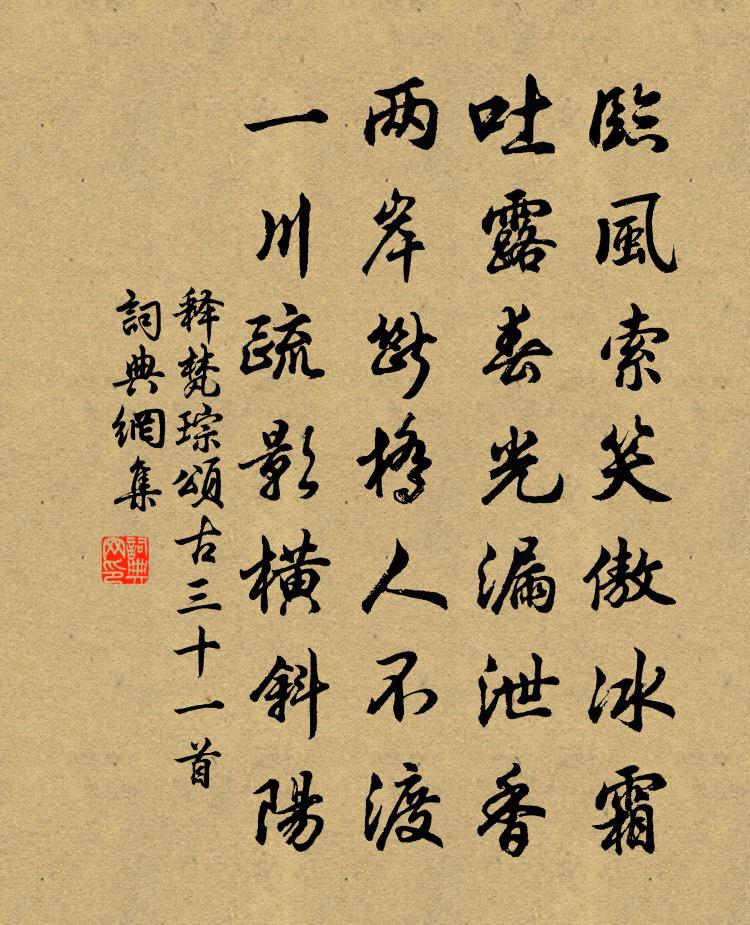 臨風索笑傲冰霜
吐露春光漏泄香
两岸斷橋人不渡
一川疏影橫斜陽
释梵琮頌古三十一首
詞典網集
詞典
网印